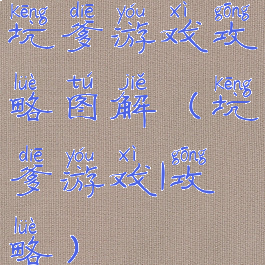 kēng diē yóu xì gōng
坑爹游戏攻
lüè tú jiě kēng
略图解（坑
diē yóu xì gōng
爹游戏|攻
lüè
略）